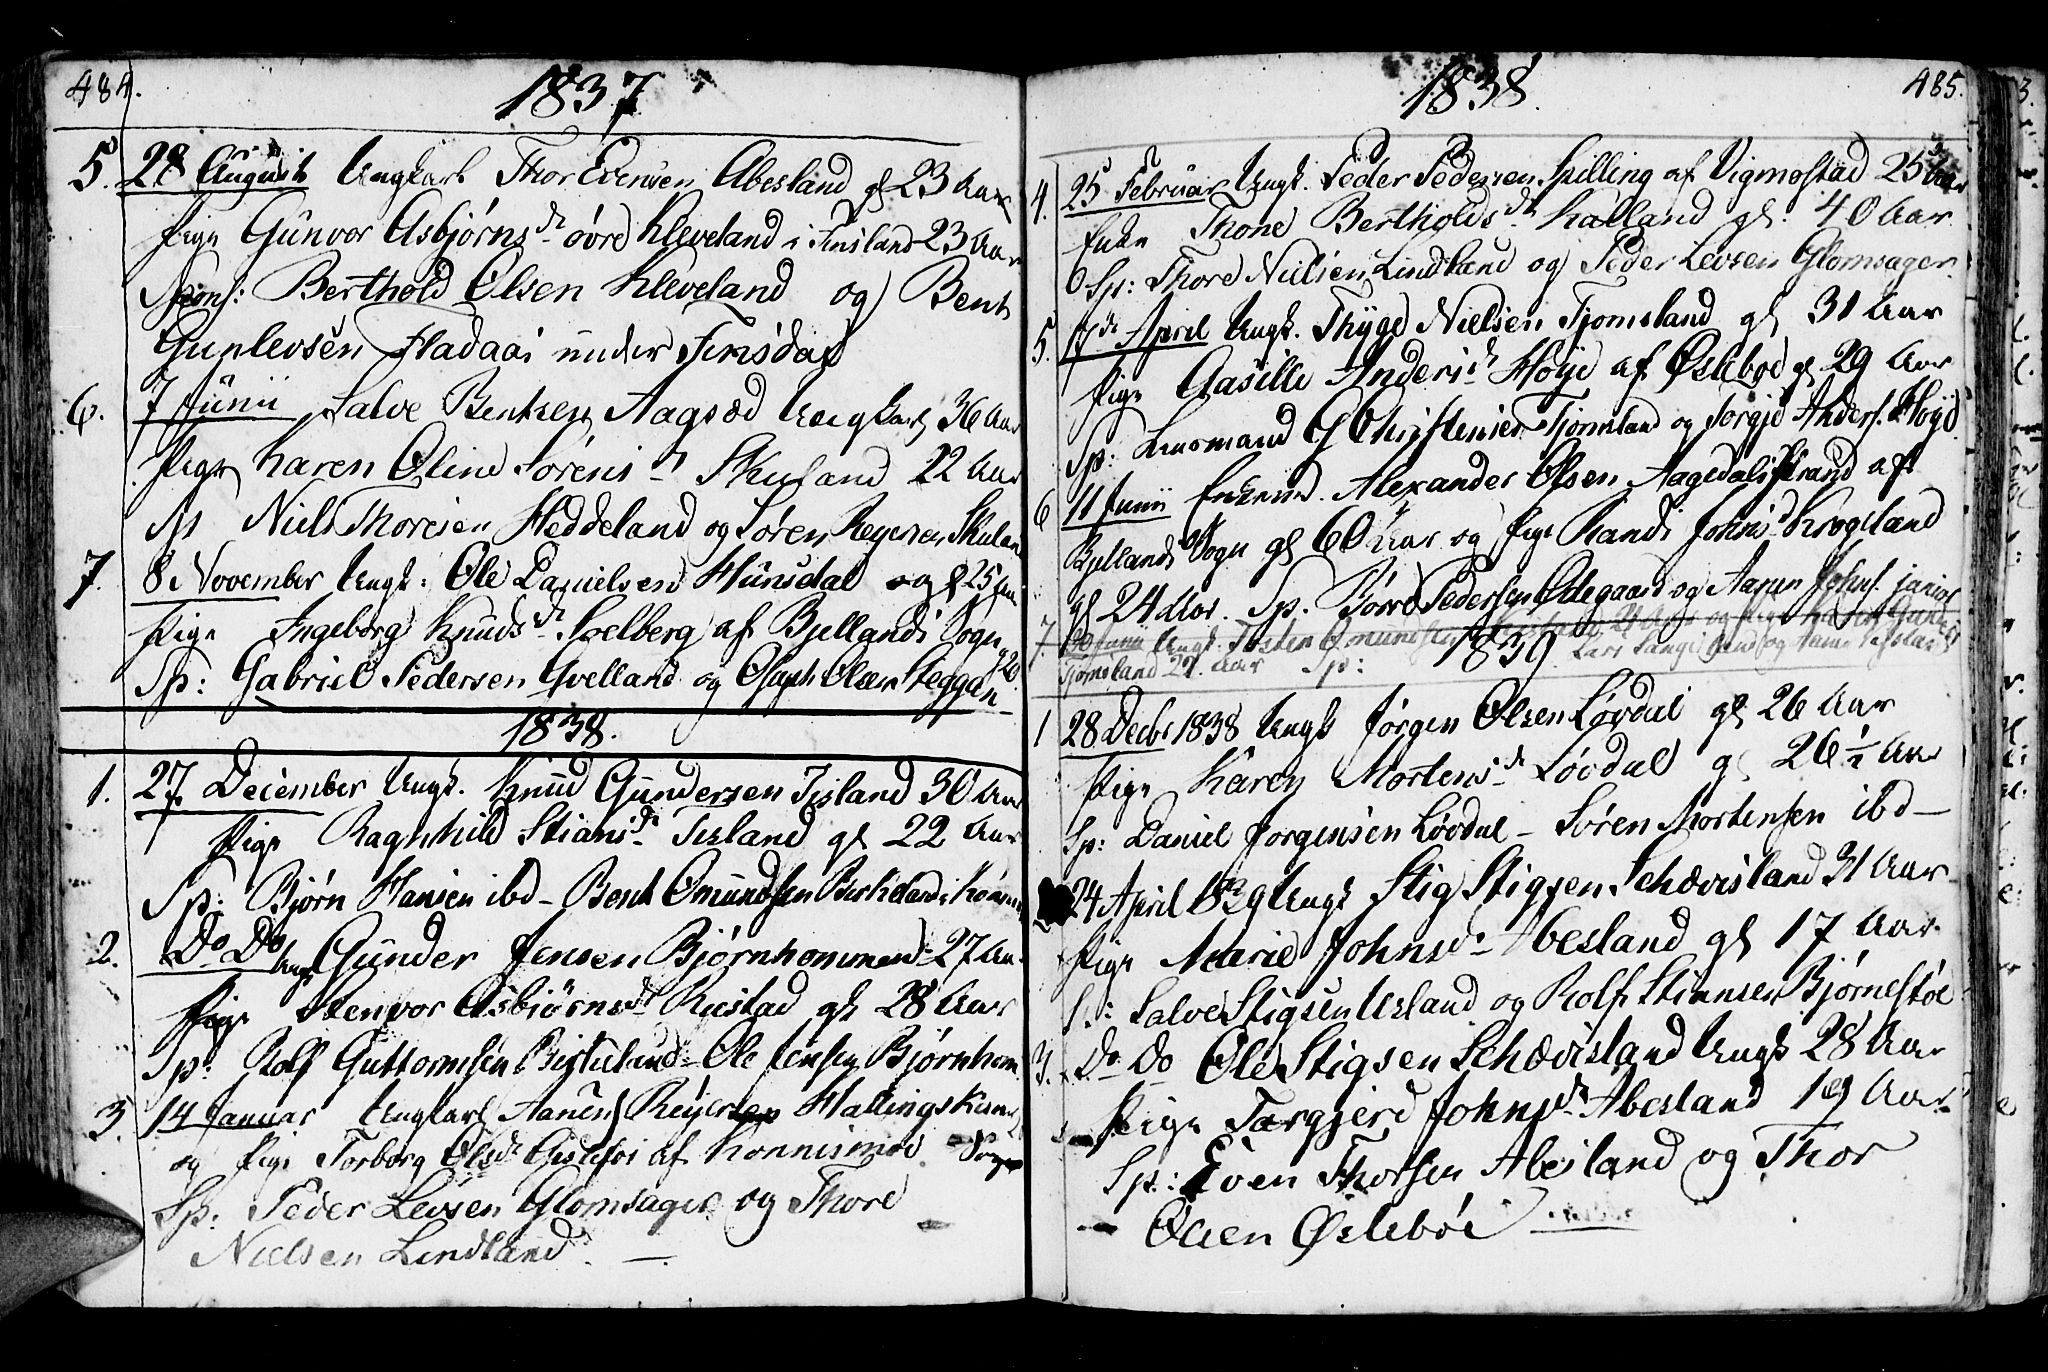 484.
1837
5. 28 August Ungkarl Thor Evensen Abesland gl 23 Aar
Pige Gunvor Asbjørnsd. øvre Kleveland i Finsland 23 Aar
Spons: Berthold Olsen Kleveland og Bent
Gunlevsen Fladaas under Finsdal
6. 7 Junii Salve Bentsen Aagsæd Ungkarl 36 Aar
Pige Karen Oline Sørensd. Skuland 22 Aar
Niels Thoresen Heddeland og Søren Reyersen Skulan
7. 8 November Ungk: Ole Danielsen Hunsdal og gl 25 Aar
Pige Ingeborg Knudsd. Solberg af Bjellands Sogn
Sp: Gabriel Pedersen Qvelland og Olsen Steggan
1838.
1. 27 December Ungk. Knud Gundersen Iisland 30 Aar
Pige Ragnhild Stiansd. Iisland gl 22 Aar
Sp: Bjørn Hansen ibd - Bent Omundsen Birkeland
2. Do Do Ungk Gunder Jensen Bjørnhommen 27 Aar
Pige Stenvor Asbjørnsd. Rustad gl 28 Aar
Sp: Rolf Guttormsen Birkeland - Ole Jensen Bjørnhom
3. 14 Januar Ungkarl Aanen Reyersen Hallingskism
og Pige Torborg Olsd. af Konnismoe Sogn
Sp: Peder Levsen Glomsager og Thore
Nielsen Lindland. —
1838.
485.
4. 25 Februar Ungk. Peder Pedersen Spilling af Vigmostad 25 Aar
Enke Thone Bertholdsd. Kalland gl: 40 Aar
Sp: Thore Nielsen Lindland og Peder Levsen Glomsager
5. 17de April Ungk. Thyge Nielsen Tjomsland gl 31 Aar
Pige Aasille Andersd. Høye af Øslebøe gl 29 Aar
Sp: Lensmand G Christensen Tjomsland og Torgje Anders. Høye
6 11 Junii Enkemd. Alexander Olsen Aagedalstrand af
Bjellands Sogn gl 60 Aar og Pige Randi Johnsd. Krogeland
gl 24 Aar. Sp. Børre Pedersen Ødegaard og Aanen Johns.
7. Junii Ungk. Tosten Omundsen og Pige
Tjomsland 27 Aar Sp:
1839.
1 28 Decbr 1838 Ungk Jørgen Olsen Løvdal gl 26 Aar
Pige Karen Mortensd. Løvdal gl 26½ Aar
Sp: Daniel Jørgensen Løvdal - Søren Mortensen ibd —
24 April 1839 Ungk Stig Stigsen Schævisland 31 Aar
Pige Marie Johnsd. Abesland gl 17 Aar
S.: Salve Stigsen Usland og Rolf Stiansen Bjørnestøe
3. Do Do Ole Stigsen Schævisland Ungk 28 Aar
Pige Torgjerd Johnsd. Abesland 19 Aar
Sp.: Even Thorsen Abesland og Thor
Olsen Øslebøe